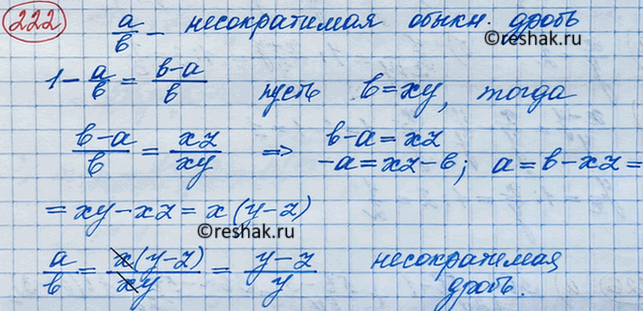 222
a/в - несократимая обыкн. дробь
©reshak.ru
1 - a/в = (в-a)/в пусть в=xy, тогда
(в-a)/в = xz/xy ⇒ в-a=xz
-a=xz-в; a=в-xz=
=xy-xz=x(y-z)
©reshak.ru
a/в = x(y-z)/xy = (y-z)/y несократимая
дробь.